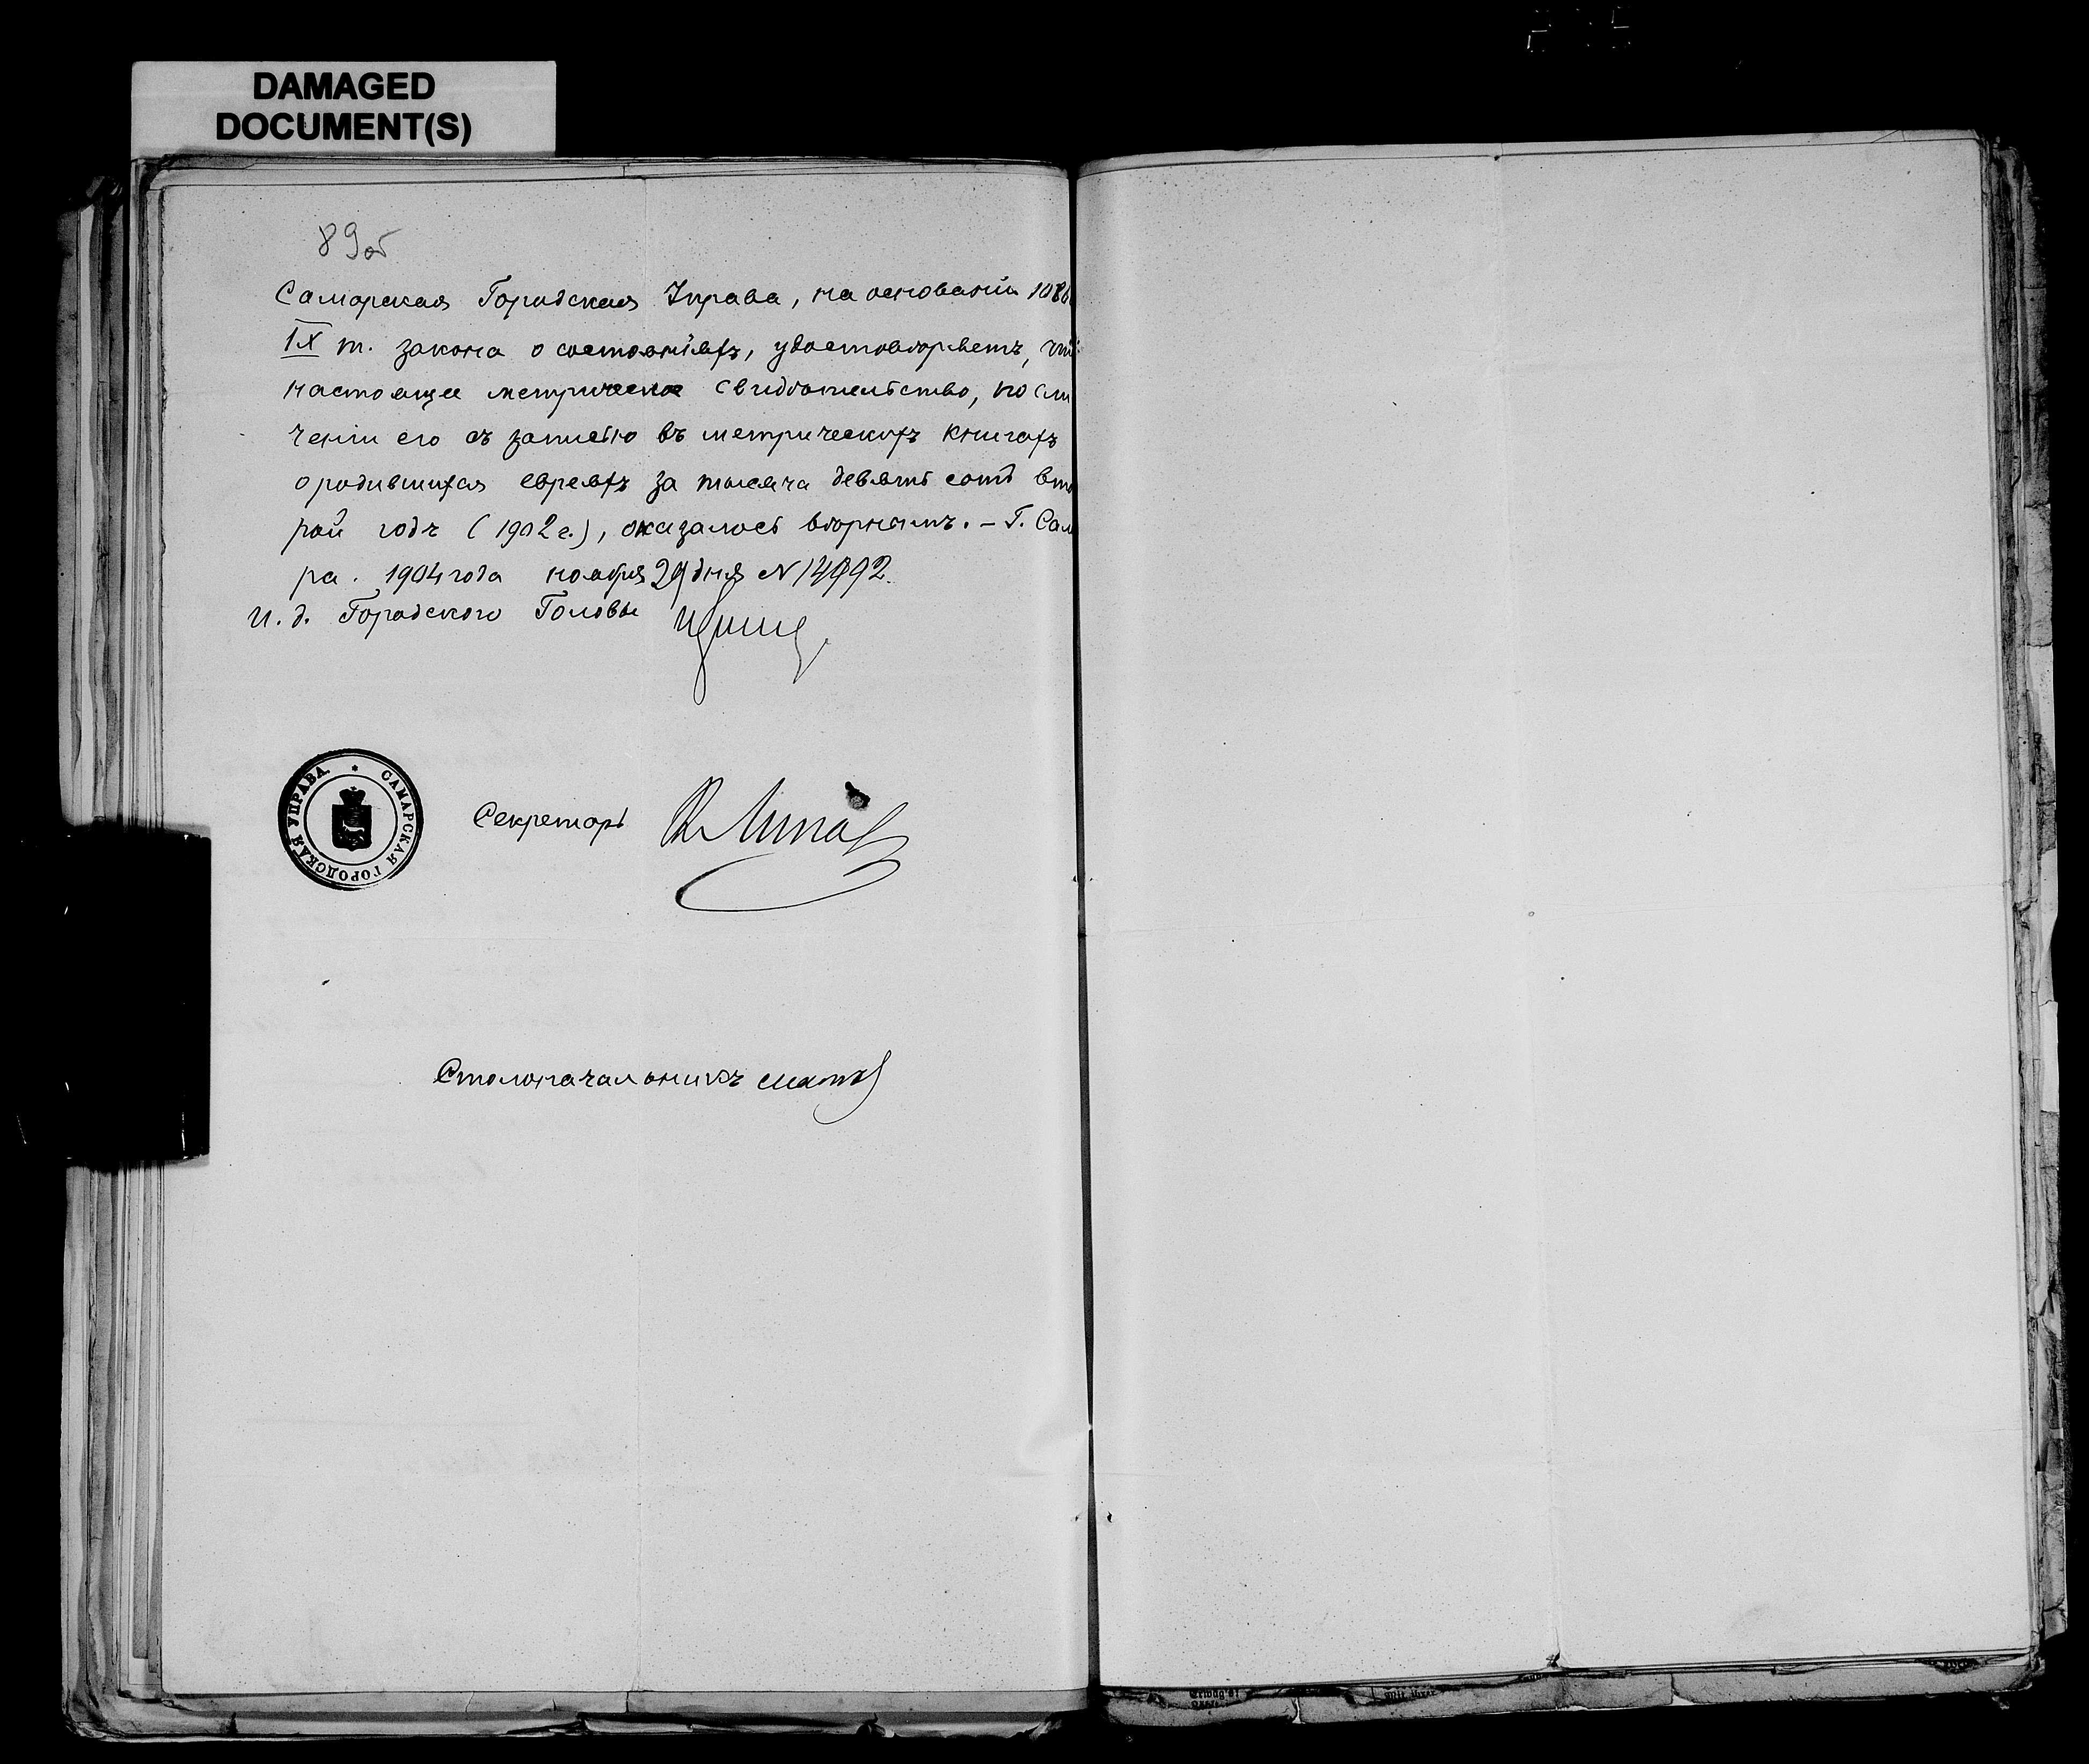 DAMAGED
DOCUMENT(S)
89об
Самарская Городская Управа, на основании
IX т. закона о состоянiяхъ, удостовѣряетъ, что
настоящее метрическое свидѣтельство, по сли
ченiи его съ записью въ метрическихъ книгахъ
о родившихся евреяхъ за тысяча девятьсотъ вто
рой годъ (1902 г.), оказалось вѣрнымъ. – Г. Сама
ра. 1904 года ноября 29 дня №
И. д. Городского Головы
САМАРСКАЯ ГОРОДСКАЯ УПРАВА
Секретарь
Столоначальникъ